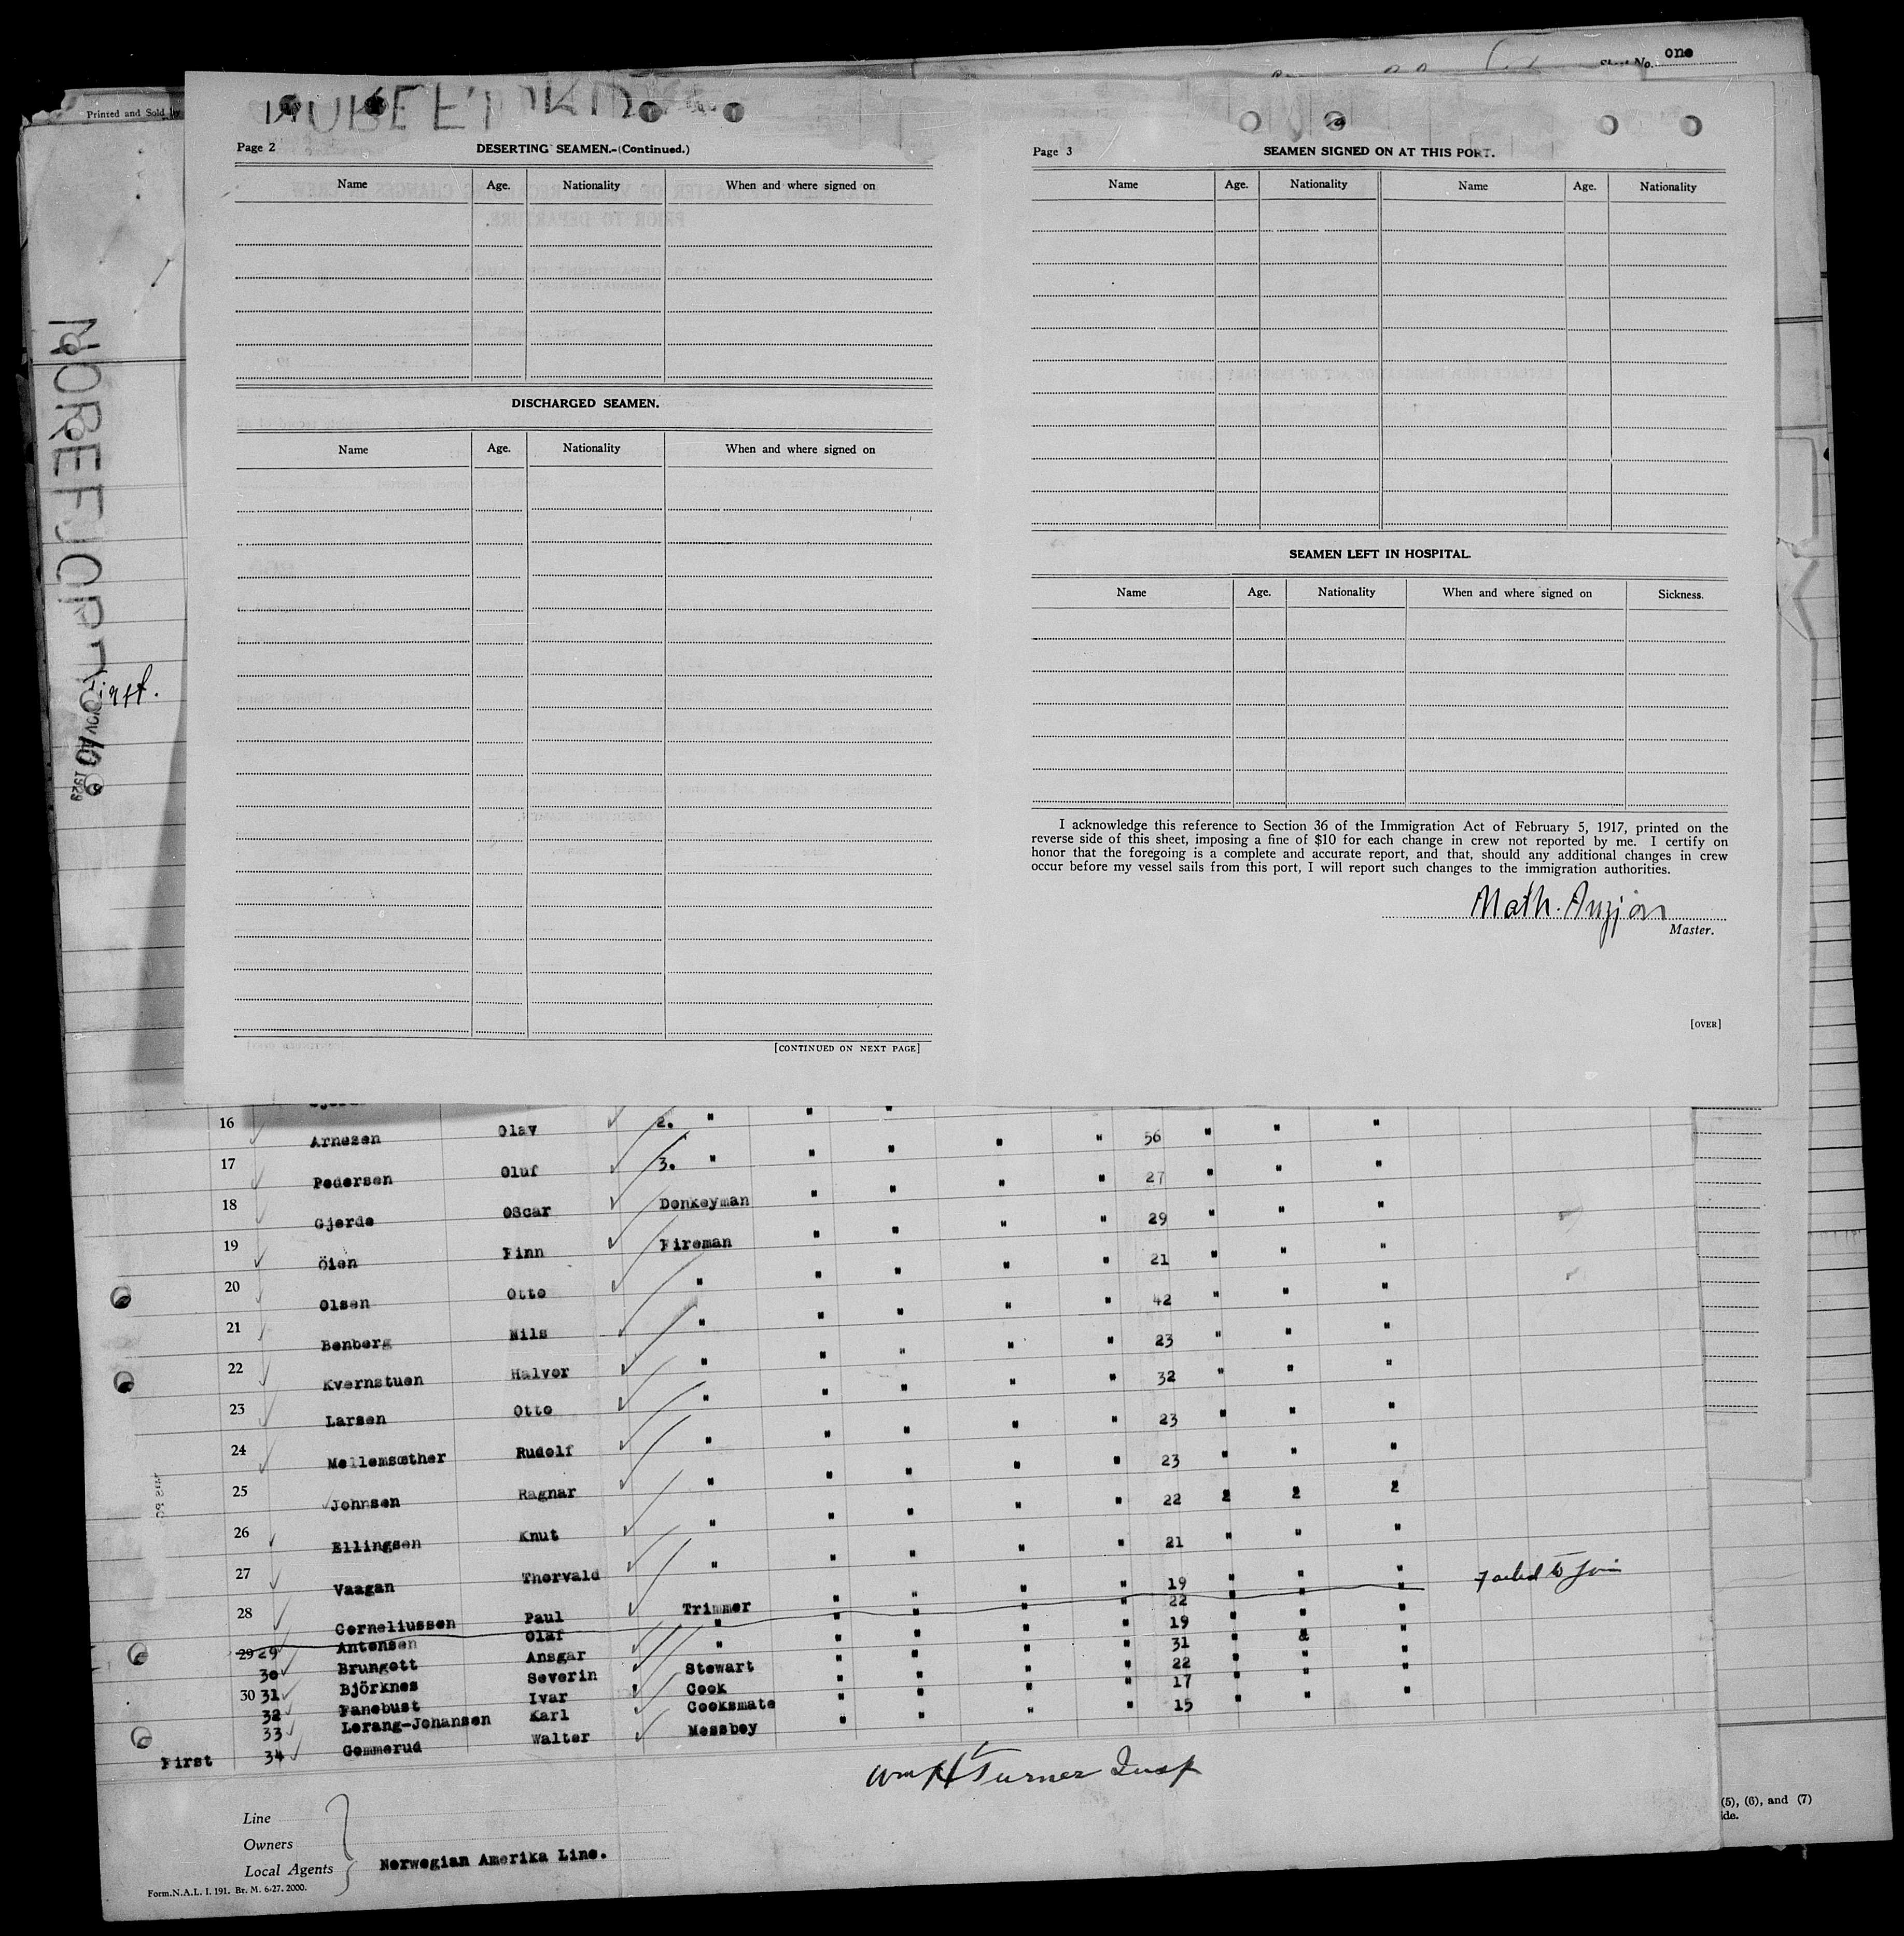 Sheet No. one
Printed and Sold by
NOREFJORD
NOV 10 1929
Page 2
DESERTING SEAMEN.-(Continued.)
Name Age. Nationality When and where signed on
DISCHARGED SEAMEN.
Name Age. Nationality When and where signed on
[CONTINUED ON NEXT PAGE]
Page 3
SEAMEN SIGNED ON AT THIS PORT.
Name Age. Nationality Name Age. Nationality
SEAMEN LEFT IN HOSPITAL.
Name Age. Nationality When and where signed on Sickness.
I acknowledge this reference to Section 36 of the Immigration Act of February 5, 1917, printed on the
reverse side of this sheet, imposing a fine of $10 for each change in crew not reported by me. I certify on
honor that the foregoing is a complete and accurate report, and that, should any additional changes in crew
occur before my vessel sails from this port, I will report such changes to the immigration authorities.
Math.
Master.
[OVER]
16 Arnesen Olav 2. " " " " " 56 " " "
17 Pedersen Oluf 3. " " " " " 27 " " "
18 Gjerde OScar Donkeyman " " " " 29 " " "
19 Öien Finn Fireman " " " " 21 " " "
20 Olsen Otto " " " " " 42 " " "
21 Benberg Nils " " " " " 23 " " "
22 Kvernstuen Halvor " " " " " 32 " " "
23 Larsen Otto " " " " " 23 " " "
24 Mellemsæther Rudolf " " " " " 23 " " "
25 Johnsen Ragnar " " " " " 22 2 2 2
26 Ellingsen Knut " " " " " 21 " " "
27 Vaagan Thorvald " " " " " 19 " " "
28 Corneliussen Paul Trimmer " " " " 22 " " " Failed to Join
29 29 Antonsen Olaf " " " " " 19 " " "
30 Brungott Ansgar " " " " " 31 " & "
30 31 Björknes Severin Stewart " " " " 22 " " "
32 Fanebust Ivar Cook " " " " 17 " " "
33 Lorang-Johansen Karl Cooksmate " " " " 15 " " "
First 34 Gommerud Walter Messboy " " " "
Wm H Turner Insp
Line
Owners
Local Agents Norwegian Amerika Line.
Form.N.A.L. I. 191. Br. M. 6-27. 2000.
(5), (6), and (7)
ide.